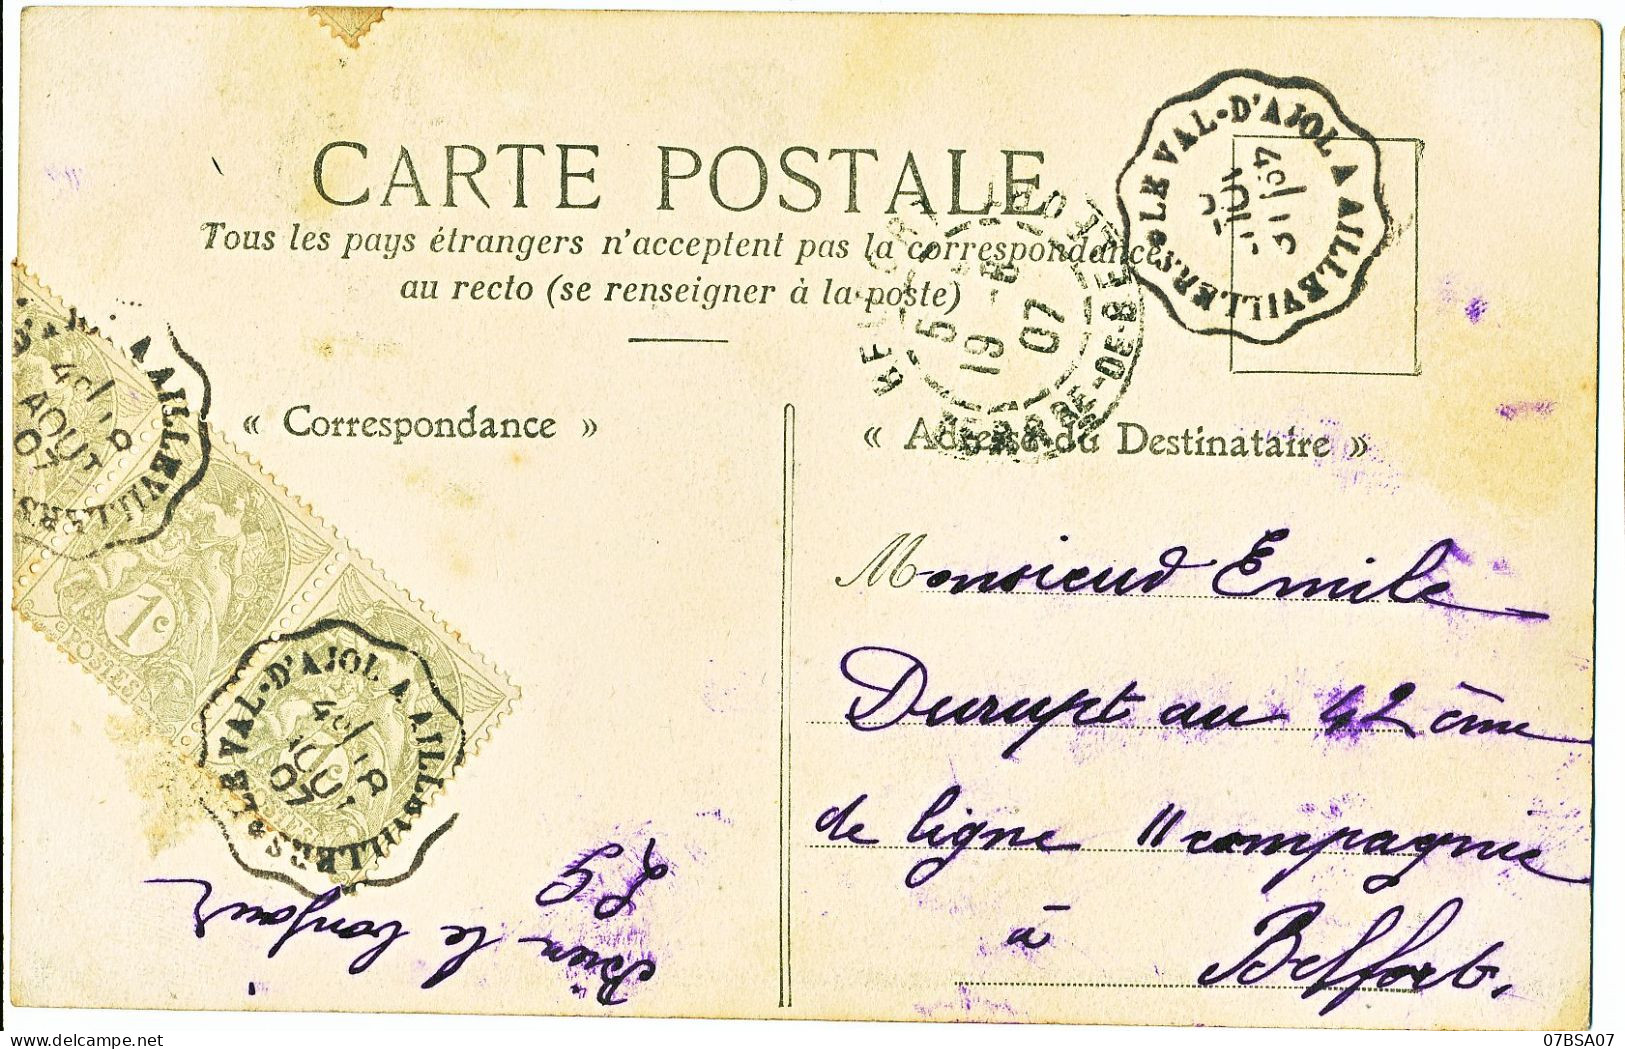 CARTE POSTALE
Tous les pays étrangers n'acceptent pas la correspondance
au recto (se renseigner à la poste)
LE VAL-D'AJOL A AILLEVILLERS
AOUT
07
BELFORT
5 -8
19 07
« Correspondance »
« Adresse du Destinataire »
LE VAL-D'AJOL A AILLEVILLERS
AOUT
07
A AILLEVILLERS
AOUT
07
1c
POSTES
Monsieur Emile
Durupt au 42 ème
de ligne 11 compagnie
à
Belfort.
Bien le bonjour
07BSA07